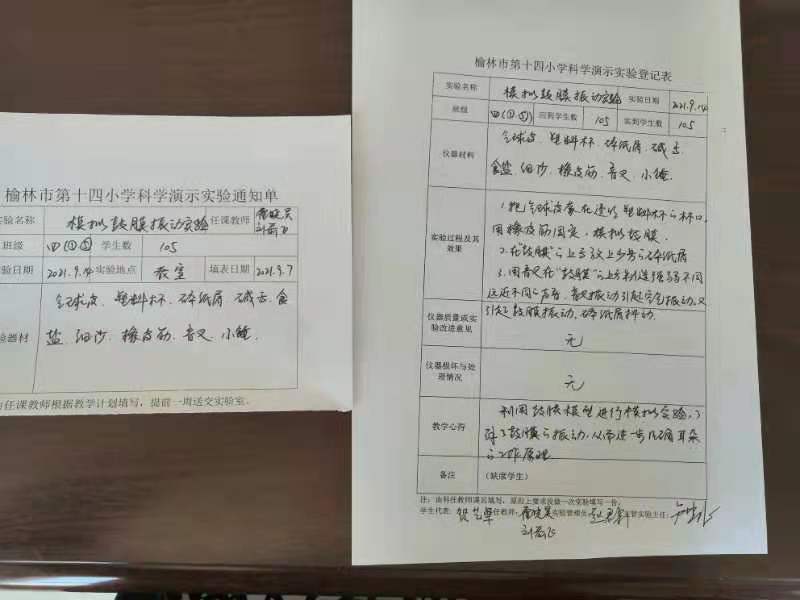 榆林市第十四小学科学演示实验通知单
实验名称 模拟鼓膜振动实验 任课教师
班级 四 学生数 105
实验日期 2021.9.14 实验地点 教室 填表日期 2021.9.7
气球皮、塑料杯、碎纸屑、碱面、食
盐、细沙、橡皮筋、音叉、小锤。
由任课教师根据教学计划填写，提前一周送交实验室。
榆林市第十四小学科学演示实验登记表
实验名称 模拟鼓膜振动实验 实验日期 2021.9.14
班级 四 应到学生数 105 实到学生数 105
仪器材料
气球皮、塑料杯、碎纸屑、碱面、
食盐、细沙、橡皮筋、音叉、小锤
实验过程及其效果
1.把气球皮蒙在透明塑料杯的杯口，
用橡皮筋固定，模拟鼓膜。
2.在“鼓膜”的上放上少量的碎纸屑
3.用音叉在“鼓膜”的上方制造强弱不同
远近不同的声音，音叉振动引起空气振动，又
引起鼓膜振动，碎纸屑抖动。
仪器质量或实验改进意见
无
仪器损坏与处理情况
无
教学心得
利用鼓膜模型进行模拟实验，
了鼓膜的振动，从而进一步明确耳朵
的工作原理
备注 （缺席学生）
学生代表： 任教师： 实验管理员： 实验主任：